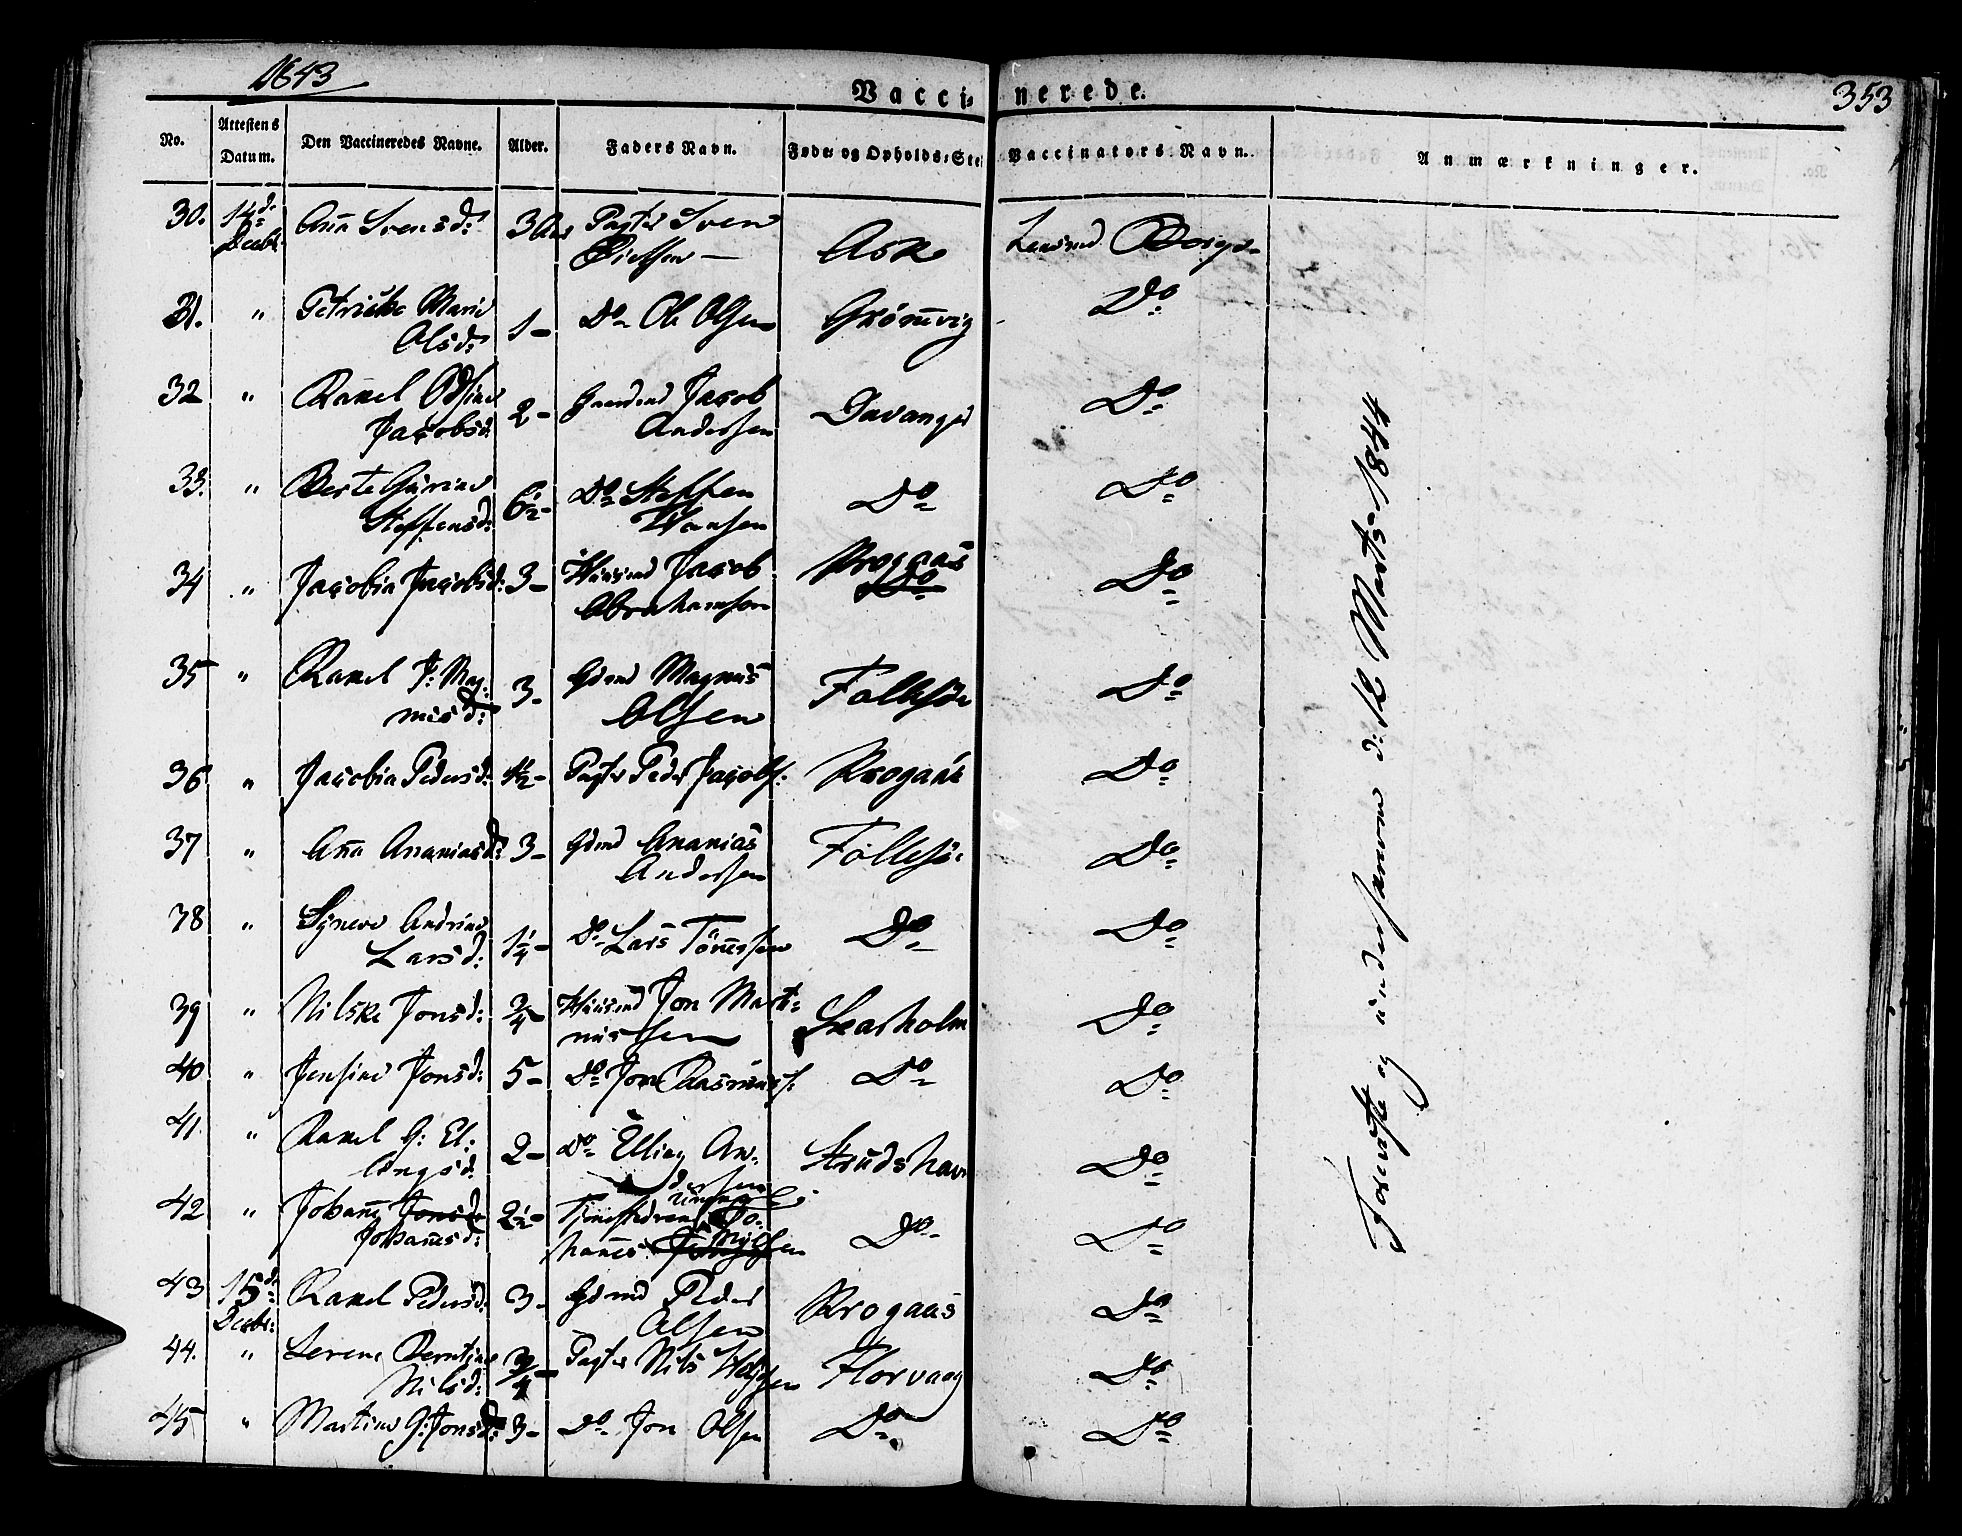 1843
Vaccinerede.
353
No. Attestens Datum. Den Vaccineredes Navne. Alder. Faders Navn. Føde- og Opholds-Ste Vaccinators Navn. Anmærkninger.
30. 14d. Decbr. Aña Svensd: 3 Aar Pagter Sven Ask Lensmd
31. " Marie Olsd: 1- Do Ole Olsen Do
32 " Jacobsd: 2- Gaardmd Jacob Andersen Davanger Do
33. " Berte Gurine Steffensd: 6½- Do Steffen Hansen Do Do
34 " Jacobia Jacobsd: 3- Huusmd Jacob Abrahamsen Krogaas Do Do
35 " Rakel J: Magnusd: 3- Gdmd Magnus Olsen Follesøe Do
36 " Jacobia Pedersd: 4½- Pagter Peder Jacobs: Krogaas Do
37 " Aña Ananiasd: 3- Gdmd Ananias Andersen Follesø: Do
38 " Andrine Larsd: 1¼- Do Lars Tönnessen Do Do
39 " Nilske Jonsd: ¾- Huusmd Jon Martinussen Skarholm Do
40 " Jensine Jonsd: 5- Do Jon Rasmuss: Do Do
41. " Rakel G: Ellingsd: 2- Do Elling Andersen Strudshavn Do
42 " Johañe Jonsd Johañesd: 2½- Johañes Do Do
43 15d. Decbr: Rakel Pedersd: 3- Gdmd Peder Olsen Krogaas Do
44. " Serene Berntine Nilsd: ¾ Pagter Nils Florvaag Do
45 " Martine G: Jonsd: 3- Do Jon Olsen Do Do
Foreviste og undersøgte d: 12 Marts 1844